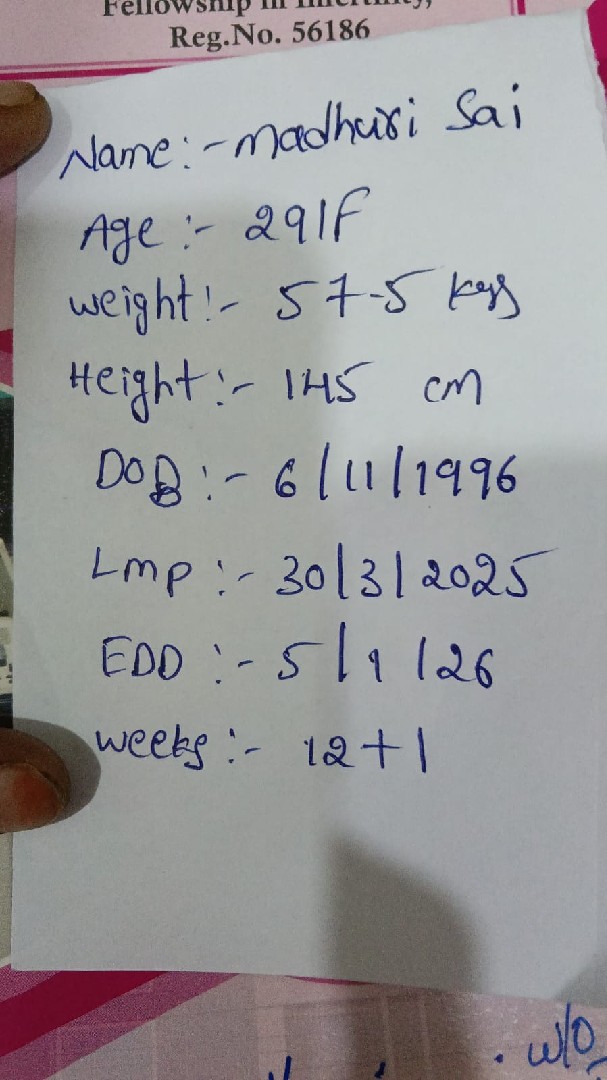 Fellowship in Infertility,
Reg.No. 56186
Name:- Madhuri Sai
Age :- 29/F
Weight:- 57.5 kgs
Height:- 145 cm
DOB :- 6/11/1996
Lmp :- 30/3/2025
EDD :- 5/1/26
Weeks :- 12+1
w/o